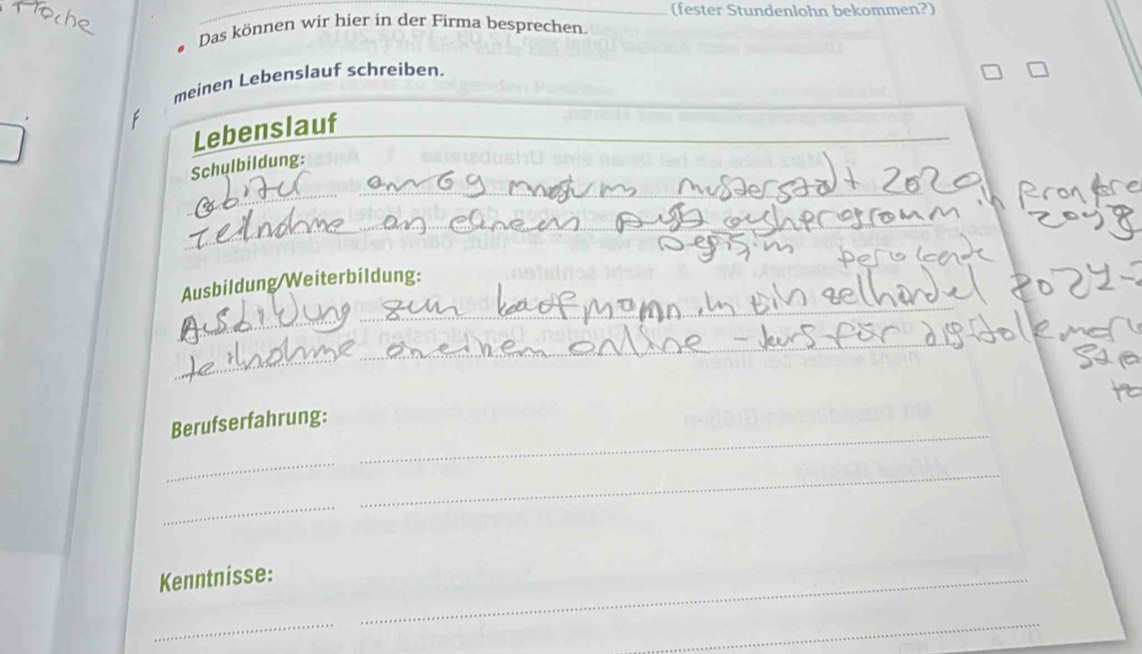 (fester Stundenlohn bekommen?)
Das können wir hier in der Firma besprechen.
meinen Lebenslauf schreiben.
Lebenslauf
Schulbildung:
abitur am Gymnasium musterstadt 2020
Teilnahme an einem austauschprogramm in Frankre
2018
Ausbildung/Weiterbildung:
Ausbildung zum kaufmann im einzelhandel 2022-
teilnahme an einem online - kurs für digitale mar
Berufserfahrung:
Kenntnisse: